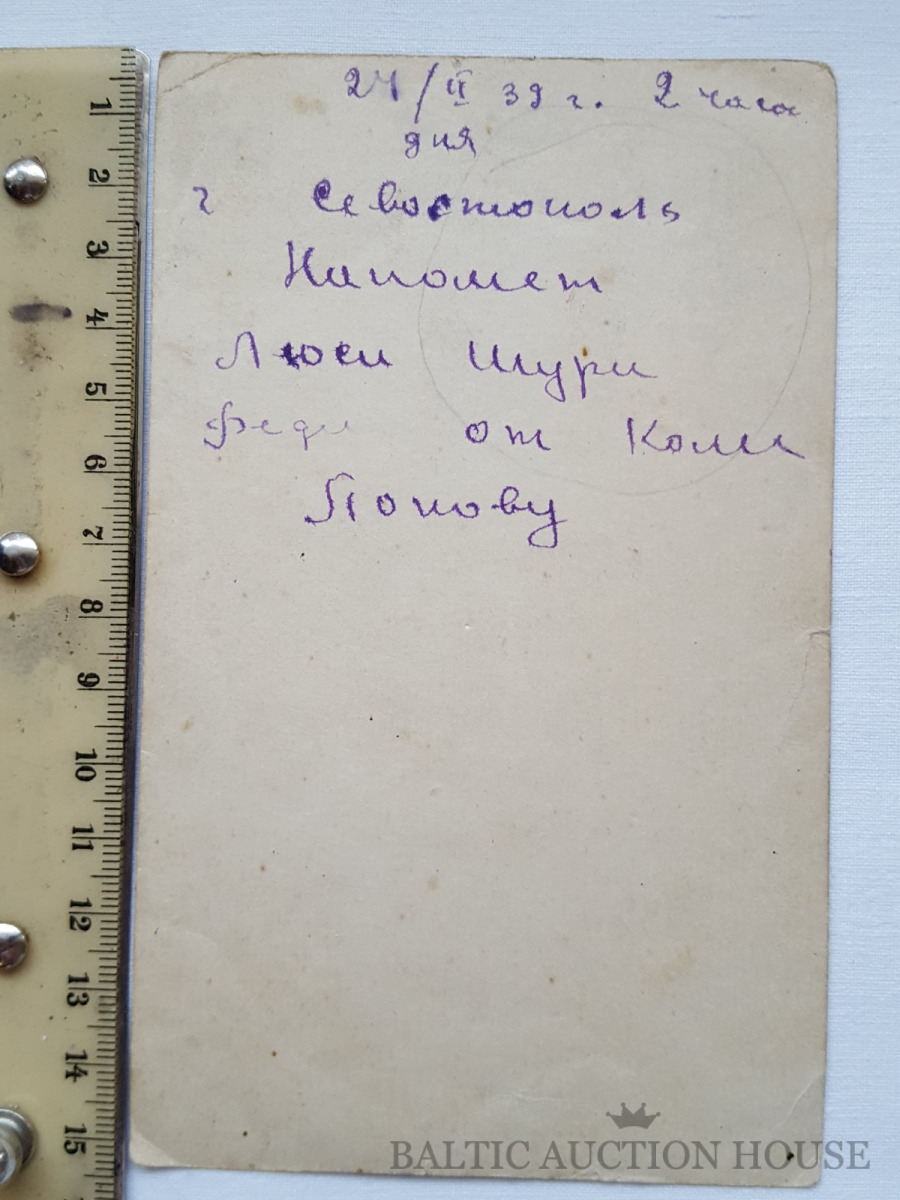 24/II 39 г. 2 часа
дня
г Севостополь
Напомет
Люси Шури
Феди от Коли
Попову
1
2
3
4
5
6
7
8
9
10
11
12
13
14
15
BALTIC AUCTION HOUSE